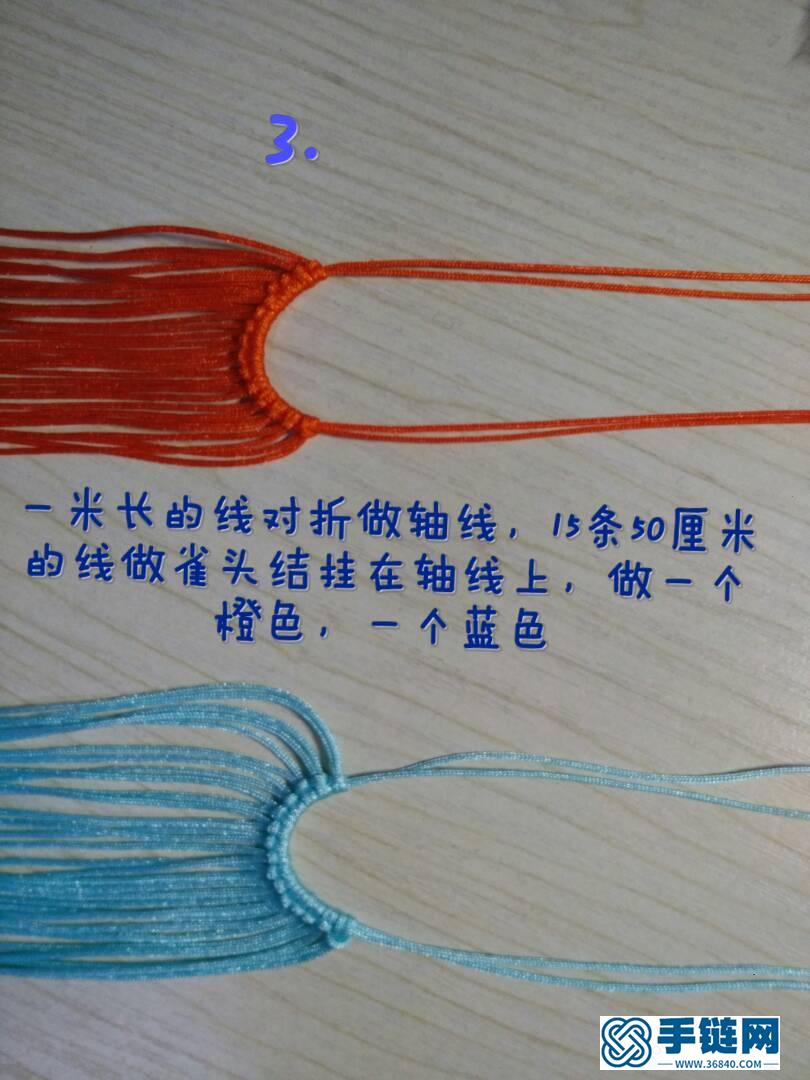 3.
一米长的线对折做轴线，15条50厘米
的线做雀头结挂在轴线上，做一个
橙色，一个蓝色
手链网
WWW.36840.COM